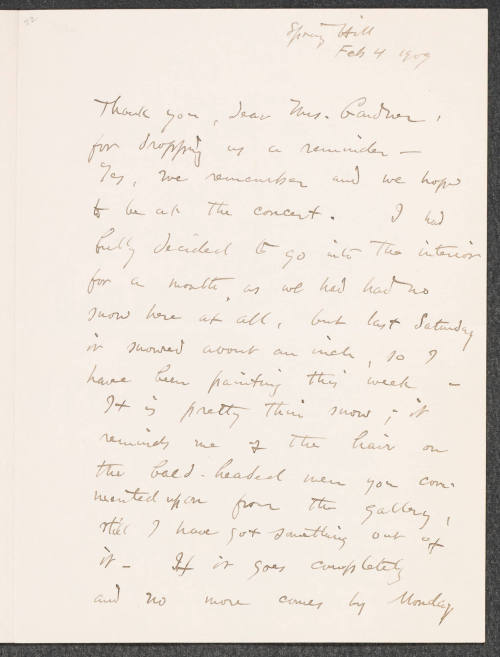 52
Spring Hill
Feb 4 1909
Thank you, dear Mrs. Gardner,
for dropping us a reminder —
Yes, we remember and we hope
to be at the concert. I had
fully decided to go into the interior
for a month, as we had had no
snow here at all, but last Saturday
it snowed about an inch, so I
have been painting this week —
It is pretty thin snow; it
reminds me of the hair on
the bald-headed men you com-
mented upon from the gallery,
still I have got something out of
it — If it goes completely
and no more comes by Monday